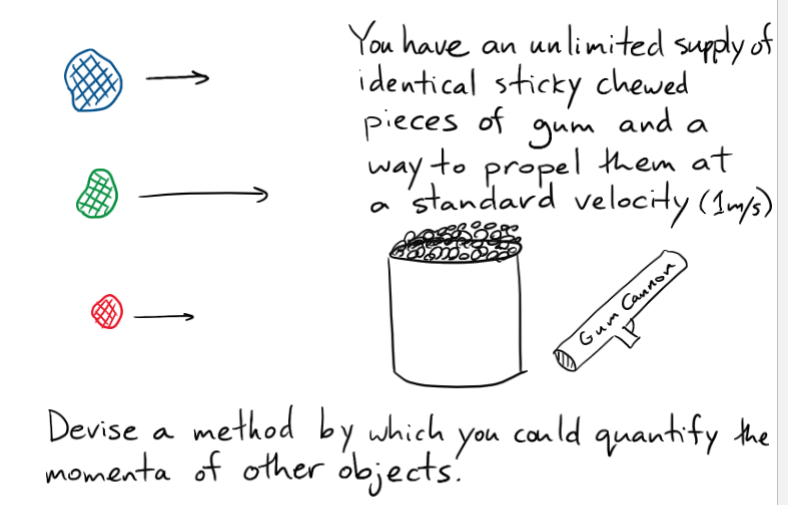 You have an unlimited supply of
identical sticky chewed
pieces of gum and a
way to propel them at
a standard velocity (1m/s)
Gum Cannon
Devise a method by which you could quantify the
momenta of other objects.